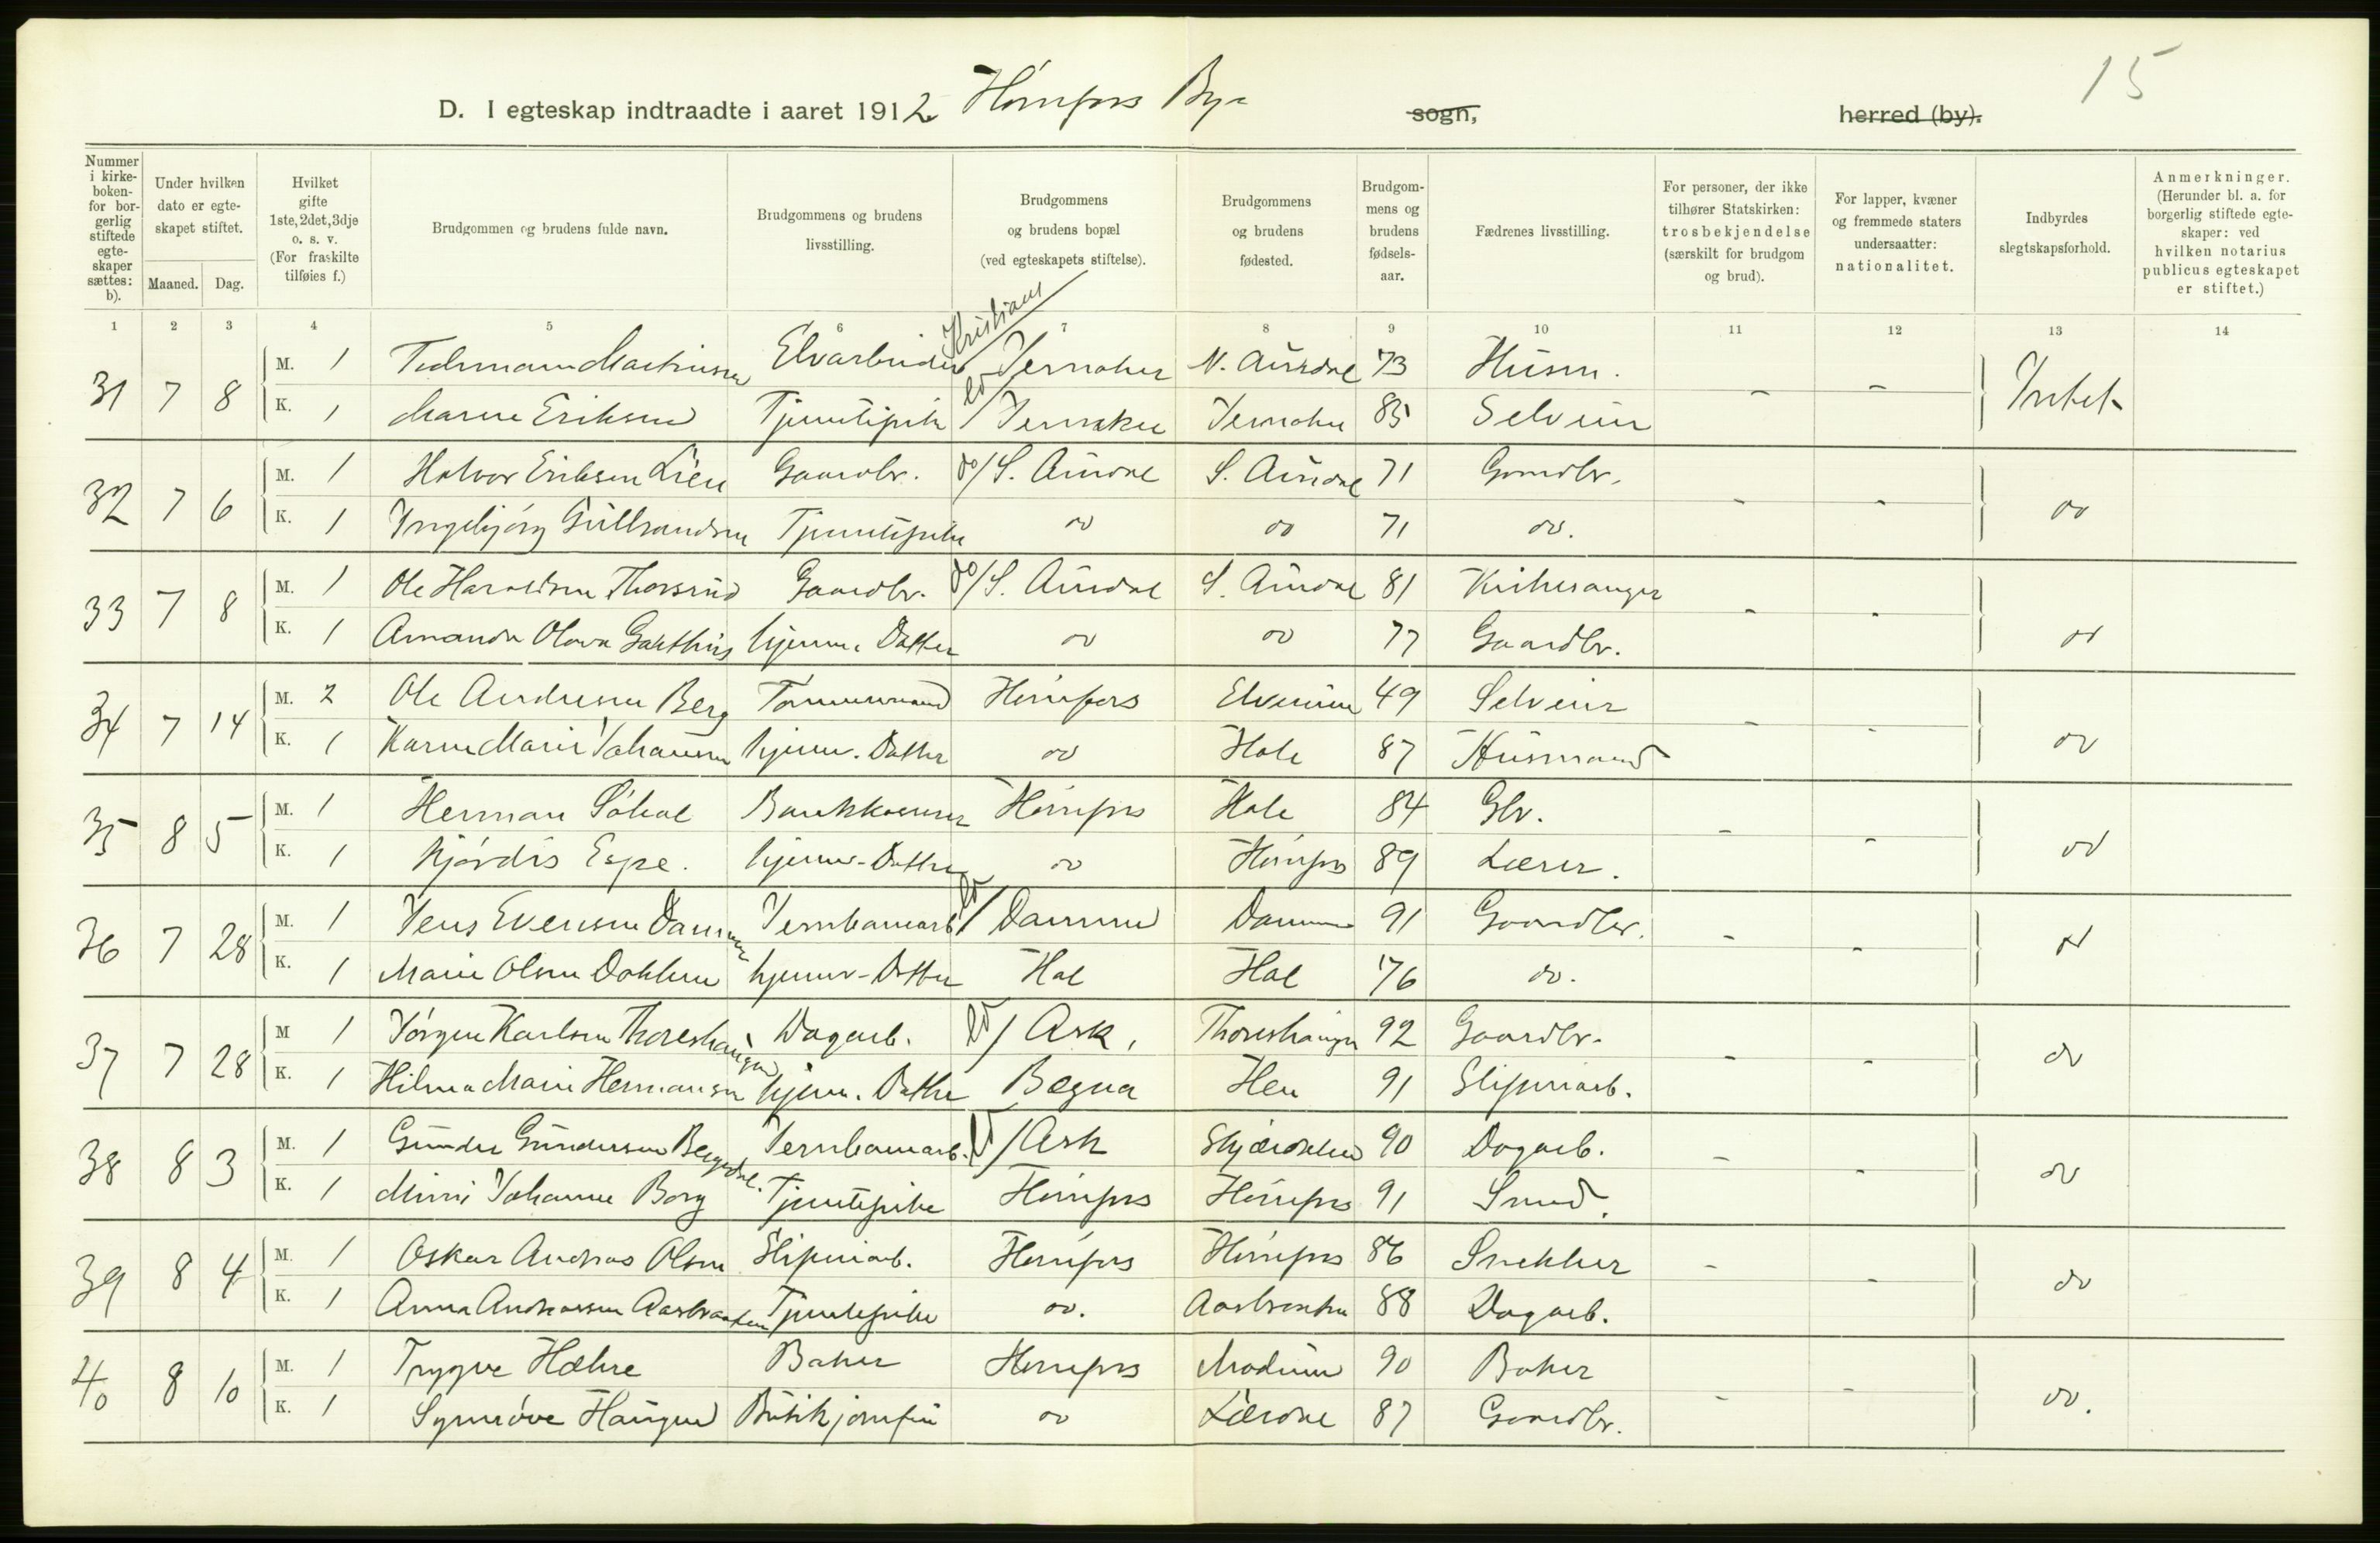 15
D. I egteskap indtraadte i aaret 1912 Hønefoss By. sogn, herred (by).
Nummer i kirkeboken- for borgerlig stiftede egteskaper sættes: b).
Under hvilken dato er egteskapet stiftet.
Maaned. Dag.
Hvilket gifte 1ste, 2det, 3dje o. s. v. (For fraskilte tilføies f.)
Brudgommen og brudens fulde navn.
Brudgommens og brudens livsstilling.
Brudgommens og brudens bopæl (ved egteskapets stiftelse).
Brudgommens og brudens fødested.
Brudgommens og brudens fødselsaar.
Fædrenes livsstilling.
For personer, der ikke tilhører Statskirken: trosbekjendelse (særskilt for brudgom og brud).
For lapper, kvæner og fremmede staters undersaatter: nationalitet.
Indbyrdes slegtskapsforhold.
Anmerkninger. (Herunder bl. a. for borgerlig stiftede egteskaper: ved hvilken notarius publicus egteskapet er stiftet.)
1 2 3 4 5 6 7 8 9 10 11 12 13 14
Kristians
31 7 8 M. 1 Tidemann Martinsen Elvarbeider / Jernaker N. Aurdal 73 Husm. - - Intet
K. 1 Maren Eriksen Tjenestepike do / Jernaker Jernaker 85 Selveier
32 7 6 M. 1 Halvor Eriksen Lien Gaardbr. do / S. Aurdal S. Aurdal 71 Gaardbr. - - do
K. 1 Ingebjørg Gulbrandsen Tjenestepike do do 71 do.
33 7 8 M. 1 Ole Haraldsen Thorsrud Gaardbr. do / S. Aurdal S. Aurdal 81 Kirkesanger - - do
K. 1 Amanda Olava Garthus hjemme Datter do do 77 Gaardbr.
34 7 14 M. 2 Ole Andersen Berg Tømmermand Hønefoss Elverum 49 Selveier - - do
K. 1 Karen Marie Johansen hjemv. Datter do Hole 87 Husmand
35 8 5 M. 1 Herman Søhol Bankkasserer Hønefos Hole 84 Gbr. - - do
K. 1 Hjørdis Espe. hjemv. Datter do Hønefos 89 Lærer.
36 7 28 M. 1 Jens Evensen Dammen Jernbanearb. do / Dammen Dammen 91 Gaardbr. - - do
K. 1 Marie Olsen Dokken hjemv-Datter Hal Hal 76 do.
37 7 28 M 1 Jørgen Karlsen Thoreshaugen Dagarb. do / Ask, Thoreshaugen 92 Gaardbr. - - do
K. 1 Hilma Marie Hermansen hjemv. Datter Begna Hen 91 Sliperiarb.
38 8 3 M. 1 Gunder Gundersen Bergsdal. Jernbanearb. do / Ask Skjærdalen 90 Dagarb. - - do
K. 1 Mimi Johanne Borg Tjenestepike Hønefos Hønefos 91 Smed.
39 8 4 M. 1 Oskar Andreas Olsen Sliperiarb. Hønefos Hønefos 86 Snekker - - do
K. 1 Anna Andreassen Aasbraaten Tjenestepike do. Aasbraaten 88 Dagarb.
40 8 10 M. 1 Trygve Hæhre Baker Hønefos Modum 90 Baker - - do.
K. 1 Synnøve Haugen Butikjomfru do Lærdal 87 Gaardbr.